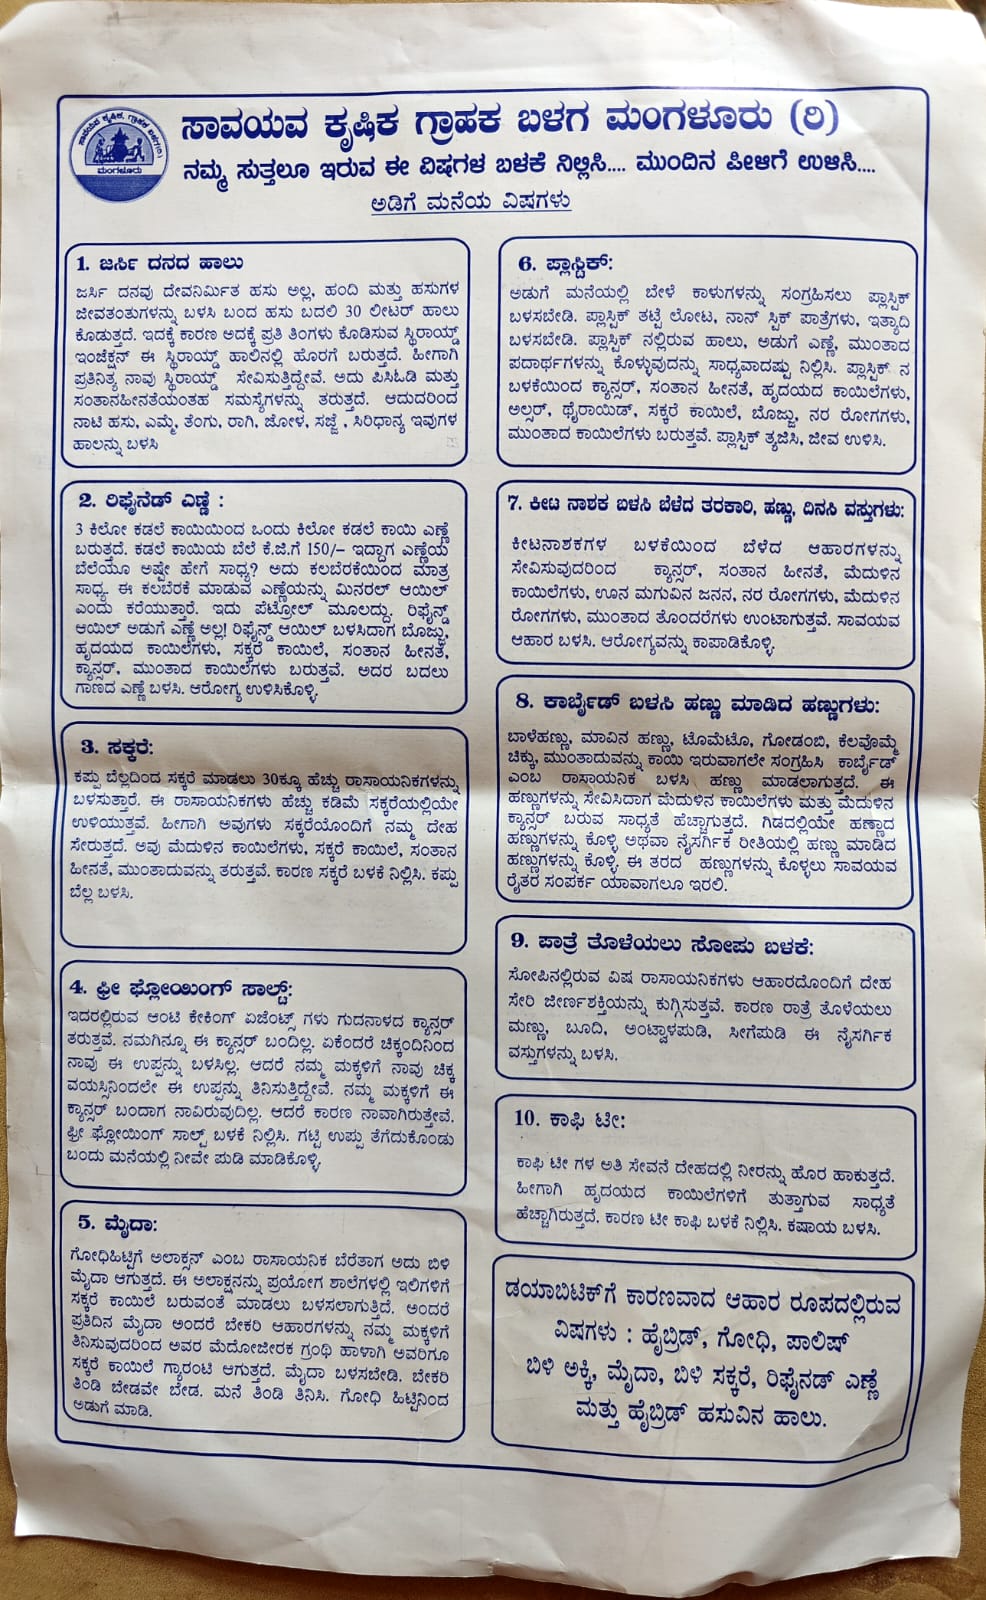 ಸಾವಯವ ಕೃಷಿಕ ಗ್ರಾಹಕ ಬಳಗ ಮಂಗಳೂರು (ರಿ)
ನಮ್ಮ ಸುತ್ತಲೂ ಇರುವ ಈ ವಿಷಗಳ ಬಳಕೆ ನಿಲ್ಲಿಸಿ.... ಮುಂದಿನ ಪೀಳಿಗೆ ಉಳಿಸಿ....
ಅಡಿಗೆ ಮನೆಯ ವಿಷಗಳು
ಸಾವಯವ ಕೃಷಿಕ, ಗ್ರಾಹಕ ಬಳಗ(ರಿ)
ಮಂಗಳೂರು
1. ಜರ್ಸಿ ದನದ ಹಾಲು
ಜರ್ಸಿ ದನವು ದೇವನಿರ್ಮಿತ ಹಸು ಅಲ್ಲ, ಹಂದಿ ಮತ್ತು ಹಸುಗಳ
ಜೀವತಂತುಗಳನ್ನು ಬಳಸಿ ಬಂದ ಹಸು ಬದಲಿ 30 ಲೀಟರ್ ಹಾಲು
ಕೊಡುತ್ತದೆ. ಇದಕ್ಕೆ ಕಾರಣ ಅದಕ್ಕೆ ಪ್ರತಿ ತಿಂಗಳು ಕೊಡಿಸುವ ಸ್ಥಿರಾಯ್ಡ್
ಇಂಜೆಕ್ಷನ್ ಈ ಸ್ಥಿರಾಯ್ಡ್ ಹಾಲಿನಲ್ಲಿ ಹೊರಗೆ ಬರುತ್ತದೆ. ಹೀಗಾಗಿ
ಪ್ರತಿನಿತ್ಯ ನಾವು ಸ್ಥಿರಾಯ್ಡ್ ಸೇವಿಸುತ್ತಿದ್ದೇವೆ. ಅದು ಪಿಸಿಓಡಿ ಮತ್ತು
ಸಂತಾನಹೀನತೆಯಂತಹ ಸಮಸ್ಯೆಗಳನ್ನು ತರುತ್ತದೆ. ಆದುದರಿಂದ
ನಾಟಿ ಹಸು, ಎಮ್ಮೆ, ತೆಂಗು, ರಾಗಿ, ಜೋಳ, ಸಜ್ಜೆ , ಸಿರಿಧಾನ್ಯ ಇವುಗಳ
ಹಾಲನ್ನು ಬಳಸಿ
2. ರಿಫೈನೆಡ್ ಎಣ್ಣೆ :
3 ಕಿಲೋ ಕಡಲೆ ಕಾಯಿಯಿಂದ ಒಂದು ಕಿಲೋ ಕಡಲೆ ಕಾಯಿ ಎಣ್ಣೆ
ಬರುತ್ತದೆ. ಕಡಲೆ ಕಾಯಿಯ ಬೆಲೆ ಕೆ.ಜಿ.ಗೆ 150/– ಇದ್ದಾಗ ಎಣ್ಣೆಯ
ಬೆಲೆಯೂ ಅಷ್ಟೇ ಹೇಗೆ ಸಾಧ್ಯ? ಅದು ಕಲಬೆರಕೆಯಿಂದ ಮಾತ್ರ
ಸಾಧ್ಯ. ಈ ಕಲಬೆರಕೆ ಮಾಡುವ ಎಣ್ಣೆಯನ್ನು ಮಿನರಲ್ ಆಯಿಲ್
ಎಂದು ಕರೆಯುತ್ತಾರೆ. ಇದು ಪೆಟ್ರೋಲ್ ಮೂಲದ್ದು. ರಿಫೈನ್ಡ್
ಆಯಿಲ್ ಅಡುಗೆ ಎಣ್ಣೆ ಅಲ್ಲ! ರಿಫೈನ್ಡ್ ಆಯಿಲ್ ಬಳಸಿದಾಗ ಬೊಜ್ಜು,
ಹೃದಯದ ಕಾಯಿಲೆಗಳು, ಸಕ್ಕರೆ ಕಾಯಿಲೆ, ಸಂತಾನ ಹೀನತೆ,
ಕ್ಯಾನ್ಸರ್, ಮುಂತಾದ ಕಾಯಿಲೆಗಳು ಬರುತ್ತವೆ. ಅದರ ಬದಲು
ಗಾಣದ ಎಣ್ಣೆ ಬಳಸಿ. ಆರೋಗ್ಯ ಉಳಿಸಿಕೊಳ್ಳಿ.
3. ಸಕ್ಕರೆ:
ಕಪ್ಪು ಬೆಲ್ಲದಿಂದ ಸಕ್ಕರೆ ಮಾಡಲು 30ಕ್ಕೂ ಹೆಚ್ಚು ರಾಸಾಯನಿಕಗಳನ್ನು
ಬಳಸುತ್ತಾರೆ. ಈ ರಾಸಾಯನಿಕಗಳು ಹೆಚ್ಚು ಕಡಿಮೆ ಸಕ್ಕರೆಯಲ್ಲಿಯೇ
ಉಳಿಯುತ್ತವೆ. ಹೀಗಾಗಿ ಅವುಗಳು ಸಕ್ಕರೆಯೊಂದಿಗೆ ನಮ್ಮ ದೇಹ
ಸೇರುತ್ತದೆ. ಅವು ಮೆದುಳಿನ ಕಾಯಿಲೆಗಳು, ಸಕ್ಕರೆ ಕಾಯಿಲೆ, ಸಂತಾನ
ಹೀನತೆ, ಮುಂತಾದುವನ್ನು ತರುತ್ತವೆ. ಕಾರಣ ಸಕ್ಕರೆ ಬಳಕೆ ನಿಲ್ಲಿಸಿ. ಕಪ್ಪು
ಬೆಲ್ಲ ಬಳಸಿ.
4. ಫ್ರೀ ಫ್ಲೋಯಿಂಗ್ ಸಾಲ್ಟ್:
ಇದರಲ್ಲಿರುವ ಆಂಟಿ ಕೇಕಿಂಗ್ ಏಜೆಂಟ್ಸ್ ಗಳು ಗುದನಾಳದ ಕ್ಯಾನ್ಸರ್
ತರುತ್ತವೆ. ನಮಗಿನ್ನೂ ಈ ಕ್ಯಾನ್ಸರ್ ಬಂದಿಲ್ಲ. ಏಕೆಂದರೆ ಚಿಕ್ಕಂದಿನಿಂದ
ನಾವು ಈ ಉಪ್ಪನ್ನು ಬಳಸಿಲ್ಲ. ಆದರೆ ನಮ್ಮ ಮಕ್ಕಳಿಗೆ ನಾವು ಚಿಕ್ಕ
ವಯಸ್ಸಿನಿಂದಲೇ ಈ ಉಪ್ಪನ್ನು ತಿನಿಸುತ್ತಿದ್ದೇವೆ. ನಮ್ಮ ಮಕ್ಕಳಿಗೆ ಈ
ಕ್ಯಾನ್ಸರ್ ಬಂದಾಗ ನಾವಿರುವುದಿಲ್ಲ. ಆದರೆ ಕಾರಣ ನಾವಾಗಿರುತ್ತೇವೆ.
ಫ್ರೀ ಫ್ಲೋಯಿಂಗ್ ಸಾಲ್ಟ್ ಬಳಕೆ ನಿಲ್ಲಿಸಿ. ಗಟ್ಟಿ ಉಪ್ಪು ತೆಗೆದುಕೊಂಡು
ಬಂದು ಮನೆಯಲ್ಲಿ ನೀವೇ ಪುಡಿ ಮಾಡಿಕೊಳ್ಳಿ.
5. ಮೈದಾ:
ಗೋಧಿಹಿಟ್ಟಿಗೆ ಅಲಾಕ್ಸನ್ ಎಂಬ ರಾಸಾಯನಿಕ ಬೆರೆತಾಗ ಅದು ಬಿಳಿ
ಮೈದಾ ಆಗುತ್ತದೆ. ಈ ಅಲಾಕ್ಷನನ್ನು ಪ್ರಯೋಗ ಶಾಲೆಗಳಲ್ಲಿ ಇಲಿಗಳಿಗೆ
ಸಕ್ಕರೆ ಕಾಯಿಲೆ ಬರುವಂತೆ ಮಾಡಲು ಬಳಸಲಾಗುತ್ತಿದೆ. ಅಂದರೆ
ಪ್ರತಿದಿನ ಮೈದಾ ಅಂದರೆ ಬೇಕರಿ ಆಹಾರಗಳನ್ನು ನಮ್ಮ ಮಕ್ಕಳಿಗೆ
ತಿನಿಸುವುದರಿಂದ ಅವರ ಮೆದೋಜೀರಕ ಗ್ರಂಥಿ ಹಾಳಾಗಿ ಅವರಿಗೂ
ಸಕ್ಕರೆ ಕಾಯಿಲೆ ಗ್ಯಾರಂಟಿ ಆಗುತ್ತದೆ. ಮೈದಾ ಬಳಸಬೇಡಿ. ಬೇಕರಿ
ತಿಂಡಿ ಬೇಡವೇ ಬೇಡ. ಮನೆ ತಿಂಡಿ ತಿನಿಸಿ. ಗೋಧಿ ಹಿಟ್ಟಿನಿಂದ
ಅಡುಗೆ ಮಾಡಿ.
6. ಪ್ಲಾಸ್ಟಿಕ್:
ಅಡುಗೆ ಮನೆಯಲ್ಲಿ ಬೇಳೆ ಕಾಳುಗಳನ್ನು ಸಂಗ್ರಹಿಸಲು ಪ್ಲಾಸ್ಟಿಕ್
ಬಳಸಬೇಡಿ. ಪ್ಲಾಸ್ಟಿಕ್ ತಟ್ಟೆ ಲೋಟ, ನಾನ್ ಸ್ಟಿಕ್ ಪಾತ್ರೆಗಳು, ಇತ್ಯಾದಿ
ಬಳಸಬೇಡಿ. ಪ್ಲಾಸ್ಟಿಕ್ ನಲ್ಲಿರುವ ಹಾಲು, ಅಡುಗೆ ಎಣ್ಣೆ, ಮುಂತಾದ
ಪದಾರ್ಥಗಳನ್ನು ಕೊಳ್ಳುವುದನ್ನು ಸಾಧ್ಯವಾದಷ್ಟು ನಿಲ್ಲಿಸಿ. ಪ್ಲಾಸ್ಟಿಕ್ ನ
ಬಳಕೆಯಿಂದ ಕ್ಯಾನ್ಸರ್, ಸಂತಾನ ಹೀನತೆ, ಹೃದಯದ ಕಾಯಿಲೆಗಳು,
ಅಲ್ಸರ್, ಥೈರಾಯಿಡ್, ಸಕ್ಕರೆ ಕಾಯಿಲೆ, ಬೊಜ್ಜು, ನರ ರೋಗಗಳು,
ಮುಂತಾದ ಕಾಯಿಲೆಗಳು ಬರುತ್ತವೆ. ಪ್ಲಾಸ್ಟಿಕ್ ತ್ಯಜಿಸಿ, ಜೀವ ಉಳಿಸಿ.
7. ಕೀಟ ನಾಶಕ ಬಳಸಿ ಬೆಳೆದ ತರಕಾರಿ, ಹಣ್ಣು, ದಿನಸಿ ವಸ್ತುಗಳು:
ಕೀಟನಾಶಕಗಳ ಬಳಕೆಯಿಂದ ಬೆಳೆದ ಆಹಾರಗಳನ್ನು
ಸೇವಿಸುವುದರಿಂದ ಕ್ಯಾನ್ಸರ್, ಸಂತಾನ ಹೀನತೆ, ಮೆದುಳಿನ
ಕಾಯಿಲೆಗಳು, ಊನ ಮಗುವಿನ ಜನನ, ನರ ರೋಗಗಳು, ಮೆದುಳಿನ
ರೋಗಗಳು, ಮುಂತಾದ ತೊಂದರೆಗಳು ಉಂಟಾಗುತ್ತವೆ. ಸಾವಯವ
ಆಹಾರ ಬಳಸಿ. ಆರೋಗ್ಯವನ್ನು ಕಾಪಾಡಿಕೊಳ್ಳಿ.
8. ಕಾರ್ಬೈಡ್ ಬಳಸಿ ಹಣ್ಣು ಮಾಡಿದ ಹಣ್ಣುಗಳು:
ಬಾಳೆಹಣ್ಣು, ಮಾವಿನ ಹಣ್ಣು, ಟೊಮೆಟೊ, ಗೋಡಂಬಿ, ಕೆಲವೊಮ್ಮೆ
ಚಿಕ್ಕು, ಮುಂತಾದುವನ್ನು ಕಾಯಿ ಇರುವಾಗಲೇ ಸಂಗ್ರಹಿಸಿ ಕಾರ್ಬೈಡ್
ಎಂಬ ರಾಸಾಯನಿಕ ಬಳಸಿ ಹಣ್ಣು ಮಾಡಲಾಗುತ್ತದೆ. ಈ
ಹಣ್ಣುಗಳನ್ನು ಸೇವಿಸಿದಾಗ ಮೆದುಳಿನ ಕಾಯಿಲೆಗಳು ಮತ್ತು ಮೆದುಳಿನ
ಕ್ಯಾನ್ಸರ್ ಬರುವ ಸಾಧ್ಯತೆ ಹೆಚ್ಚಾಗುತ್ತದೆ. ಗಿಡದಲ್ಲಿಯೇ ಹಣ್ಣಾದ
ಹಣ್ಣುಗಳನ್ನು ಕೊಳ್ಳಿ ಅಥವಾ ನೈಸರ್ಗಿಕ ರೀತಿಯಲ್ಲಿ ಹಣ್ಣು ಮಾಡಿದ
ಹಣ್ಣುಗಳನ್ನು ಕೊಳ್ಳಿ. ಈ ತರದ ಹಣ್ಣುಗಳನ್ನು ಕೊಳ್ಳಲು ಸಾವಯವ
ರೈತರ ಸಂಪರ್ಕ ಯಾವಾಗಲೂ ಇರಲಿ.
9. ಪಾತ್ರೆ ತೊಳೆಯಲು ಸೋಪು ಬಳಕೆ:
ಸೋಪಿನಲ್ಲಿರುವ ವಿಷ ರಾಸಾಯನಿಕಗಳು ಆಹಾರದೊಂದಿಗೆ ದೇಹ
ಸೇರಿ ಜೀರ್ಣಶಕ್ತಿಯನ್ನು ಕುಗ್ಗಿಸುತ್ತವೆ. ಕಾರಣ ರಾತ್ರೆ ತೊಳೆಯಲು
ಮಣ್ಣು, ಬೂದಿ, ಅಂಟ್ವಾಳಪುಡಿ, ಸೀಗೆಪುಡಿ ಈ ನೈಸರ್ಗಿಕ
ವಸ್ತುಗಳನ್ನು ಬಳಸಿ.
10. ಕಾಫಿ ಟೀ:
ಕಾಫಿ ಟೀ ಗಳ ಅತಿ ಸೇವನೆ ದೇಹದಲ್ಲಿ ನೀರನ್ನು ಹೊರ ಹಾಕುತ್ತದೆ.
ಹೀಗಾಗಿ ಹೃದಯದ ಕಾಯಿಲೆಗಳಿಗೆ ತುತ್ತಾಗುವ ಸಾಧ್ಯತೆ
ಹೆಚ್ಚಾಗಿರುತ್ತದೆ. ಕಾರಣ ಟೀ ಕಾಫಿ ಬಳಕೆ ನಿಲ್ಲಿಸಿ. ಕಷಾಯ ಬಳಸಿ.
ಡಯಾಬಿಟಿಕ್‌ಗೆ ಕಾರಣವಾದ ಆಹಾರ ರೂಪದಲ್ಲಿರುವ
ವಿಷಗಳು : ಹೈಬ್ರಿಡ್, ಗೋಧಿ, ಪಾಲಿಷ್
ಬಿಳಿ ಅಕ್ಕಿ, ಮೈದಾ, ಬಿಳಿ ಸಕ್ಕರೆ, ರಿಫೈನಡ್ ಎಣ್ಣೆ
ಮತ್ತು ಹೈಬ್ರಿಡ್ ಹಸುವಿನ ಹಾಲು.